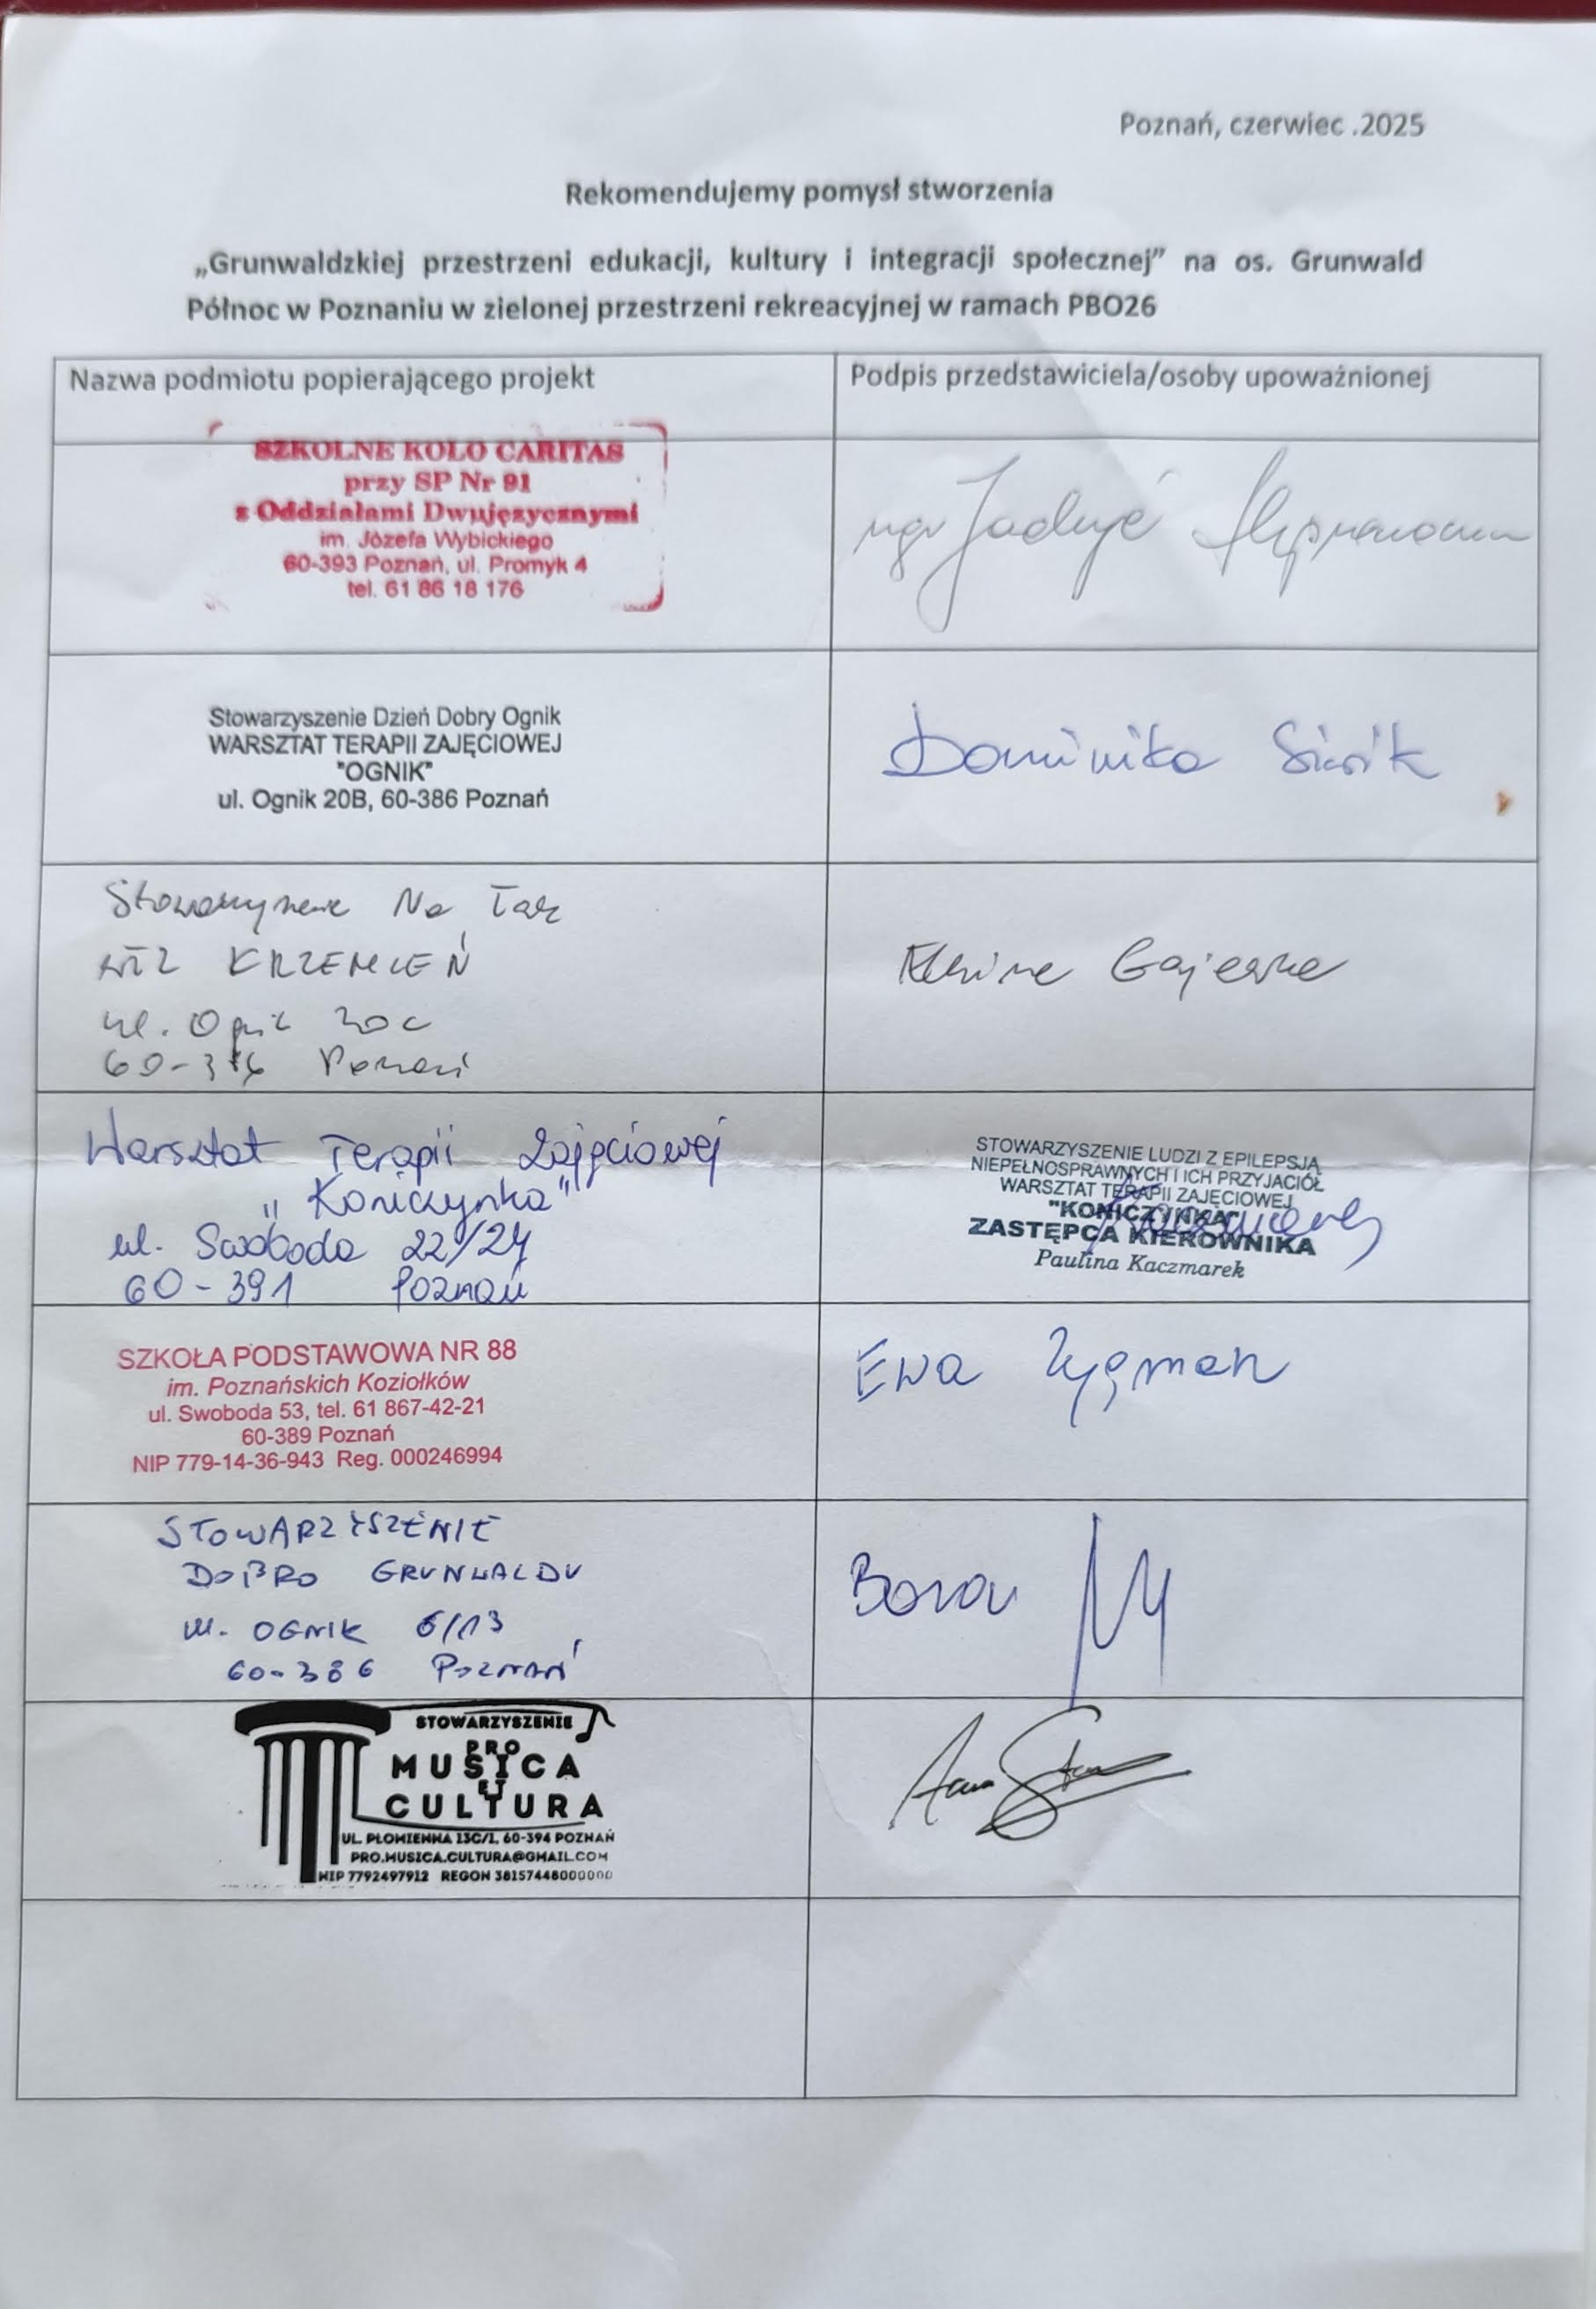 Poznań, czerwiec .2025
Rekomendujemy pomysł stworzenia
„Grunwaldzkiej przestrzeni edukacji, kultury i integracji społecznej” na os. Grunwald
Północ w Poznaniu w zielonej przestrzeni rekreacyjnej w ramach PBO26
Nazwa podmiotu popierającego projekt
Podpis przedstawiciela/osoby upoważnionej
SZKOLNE KOŁO CARITAS
przy SP Nr 91
z Oddziałami Dwujęzycznymi
im. Józefa Wybickiego
60-393 Poznań, ul. Promyk 4
tel. 61 86 18 176
mgr
Stowarzyszenie Dzień Dobry Ognik
WARSZTAT TERAPII ZAJĘCIOWEJ
"OGNIK"
ul. Ognik 20B, 60-386 Poznań
Dominika
Stowarzyszenie Na Tak
WTZ KRZEMIEŃ
ul. Ognik 20c
Poznań
Gajewska
Warsztat Terapii Zajęciowej
„Koniczynka”
ul. Swoboda 22/24
60-391 Poznań
STOWARZYSZENIE LUDZI Z EPILEPSJĄ
NIEPEŁNOSPRAWNYCH I ICH PRZYJACIÓŁ
WARSZTAT TERAPII ZAJĘCIOWEJ
"KONICZYNKA"
ZASTĘPCA KIEROWNIKA
Paulina Kaczmarek
SZKOŁA PODSTAWOWA NR 88
im. Poznańskich Koziołków
ul. Swoboda 53, tel. 61 867-42-21
60-389 Poznań
NIP 779-14-36-943 Reg. 000246994
Ewa
STOWARZYSZENIE
DOBRO GRUNWALDU
ul. OGNIK 6/13
60-386 POZNAŃ
STOWARZYSZENIE
PRO
MUSICA
ET
CULTURA
UL. PŁOMIENNA 13C/1, 60-394 POZNAŃ
PRO.MUSICA.CULTURA@GMAIL.COM
NIP 7792497912 REGON 38157448000000